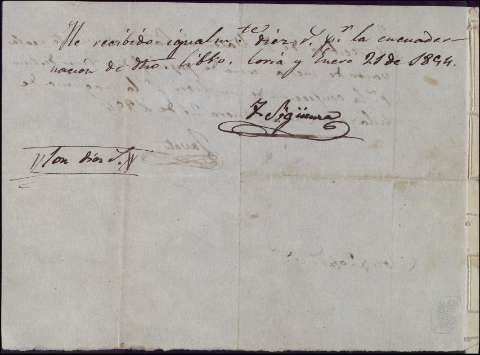 He recibido igualm.te diez r.s p.r la encuader
nación de dho. libro. Coria y Enero 21 de 1854.
F. Sigüenza
Son diez r.s